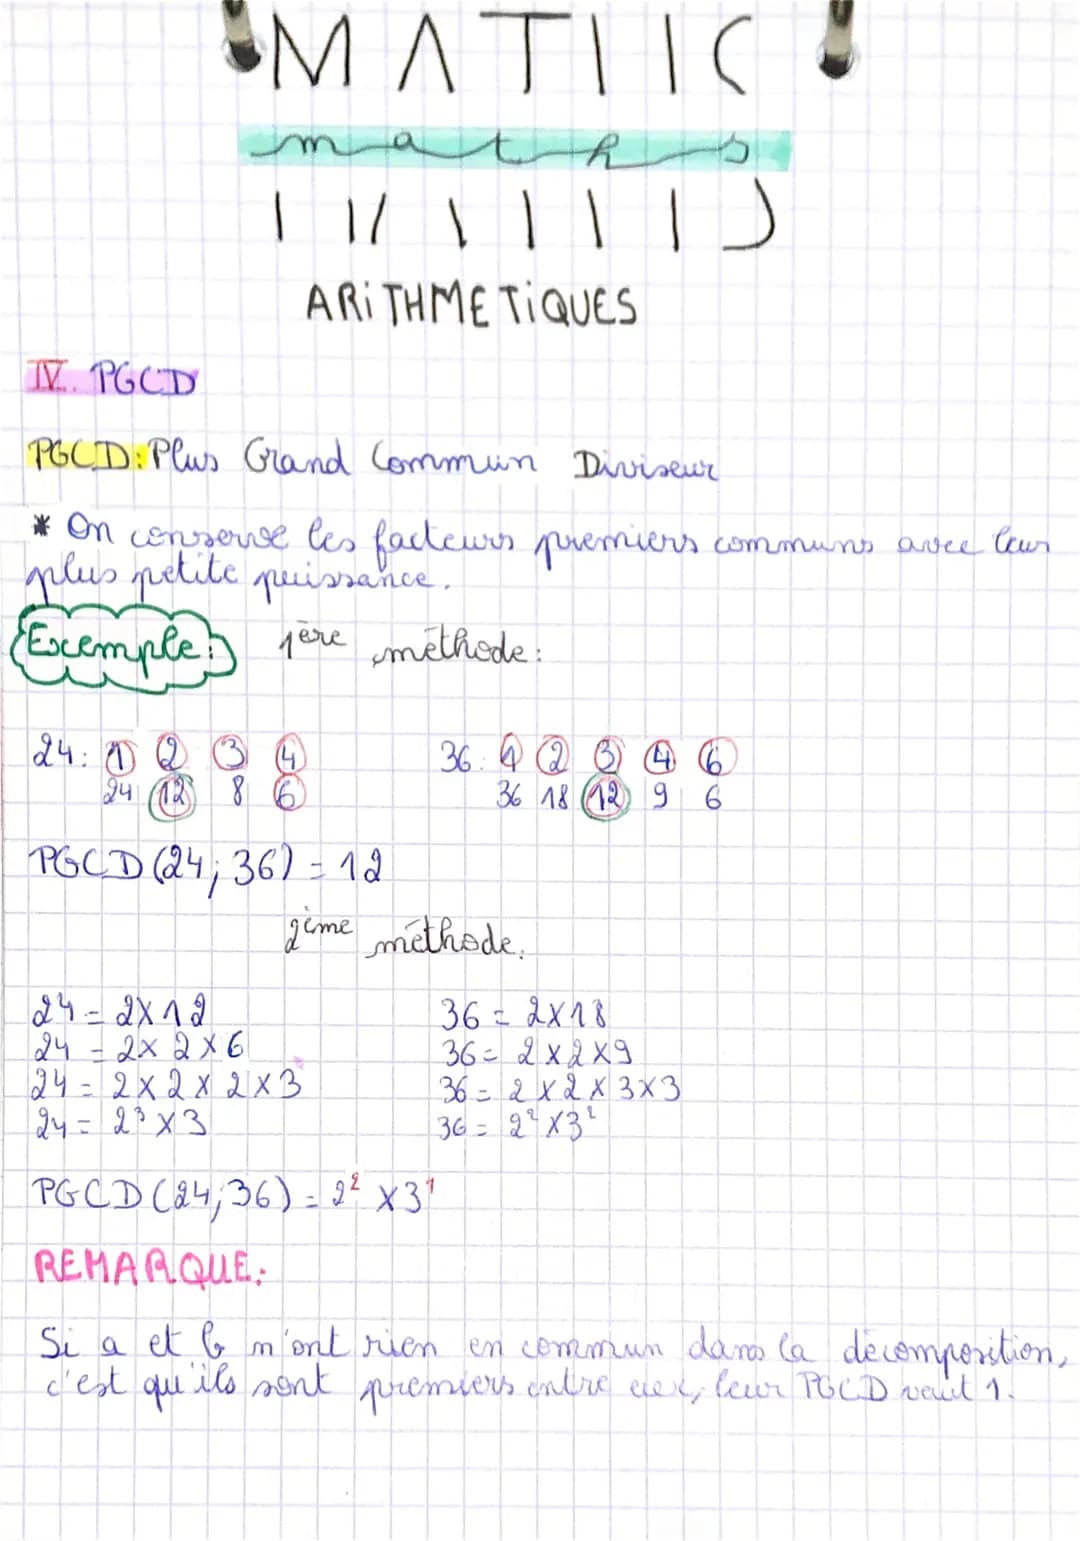 MATHS
maths
ARITHMETIQUES
IV. PGCD
PGCD: Plus Grand Commun Diviseur
* On conserve les facteurs premiers communs avec leur
plus petite puissance.
Exemple: 1ère méthode:
24: 1 2 3 4 36: 1 2 3 4 6
24 12 8 6 36 18 12 9 6
PGCD (24; 36) = 12
2ème méthode.
24 = 2x12 36 = 2x18
24 = 2x2x6 36 = 2x2x9
24 = 2x2x2x3 36 = 2x2x3x3
24 = 2³x3 36 = 2²x3²
PGCD (24; 36) = 2² x3¹
REMARQUE:
Si a et b n'ont rien en commun dans la décomposition,
c'est qu'ils sont premiers entre eux, leur PGCD vaut 1.